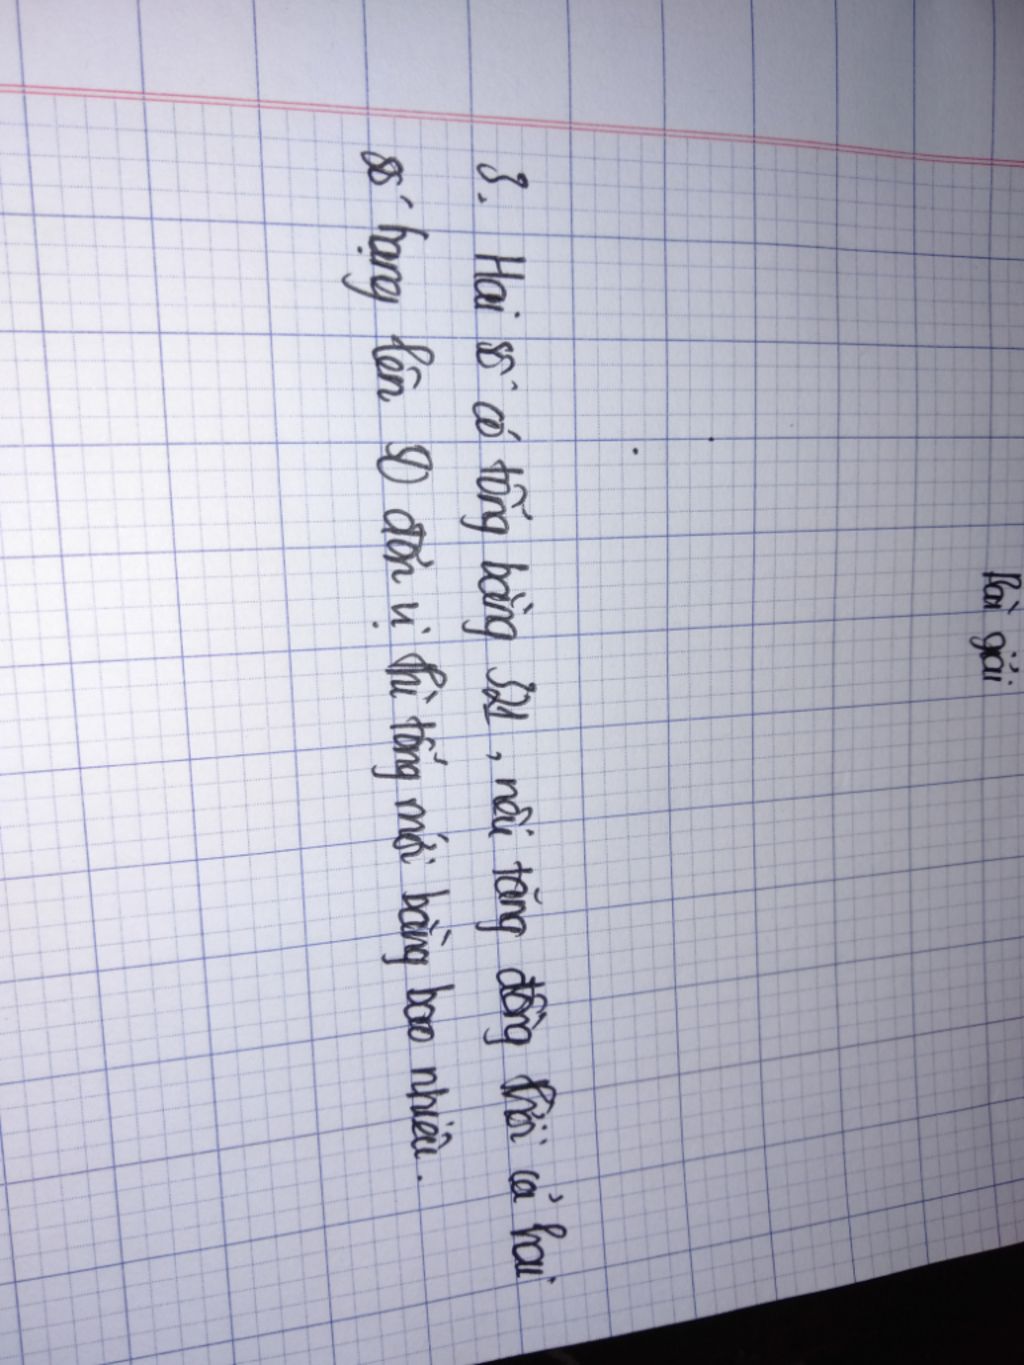 3. Hai số có tổng bằng 321, nếu tăng đồng thời cả hai
số hạng lên đơn vị thì tổng mới bằng bao nhiêu.
Bài giải